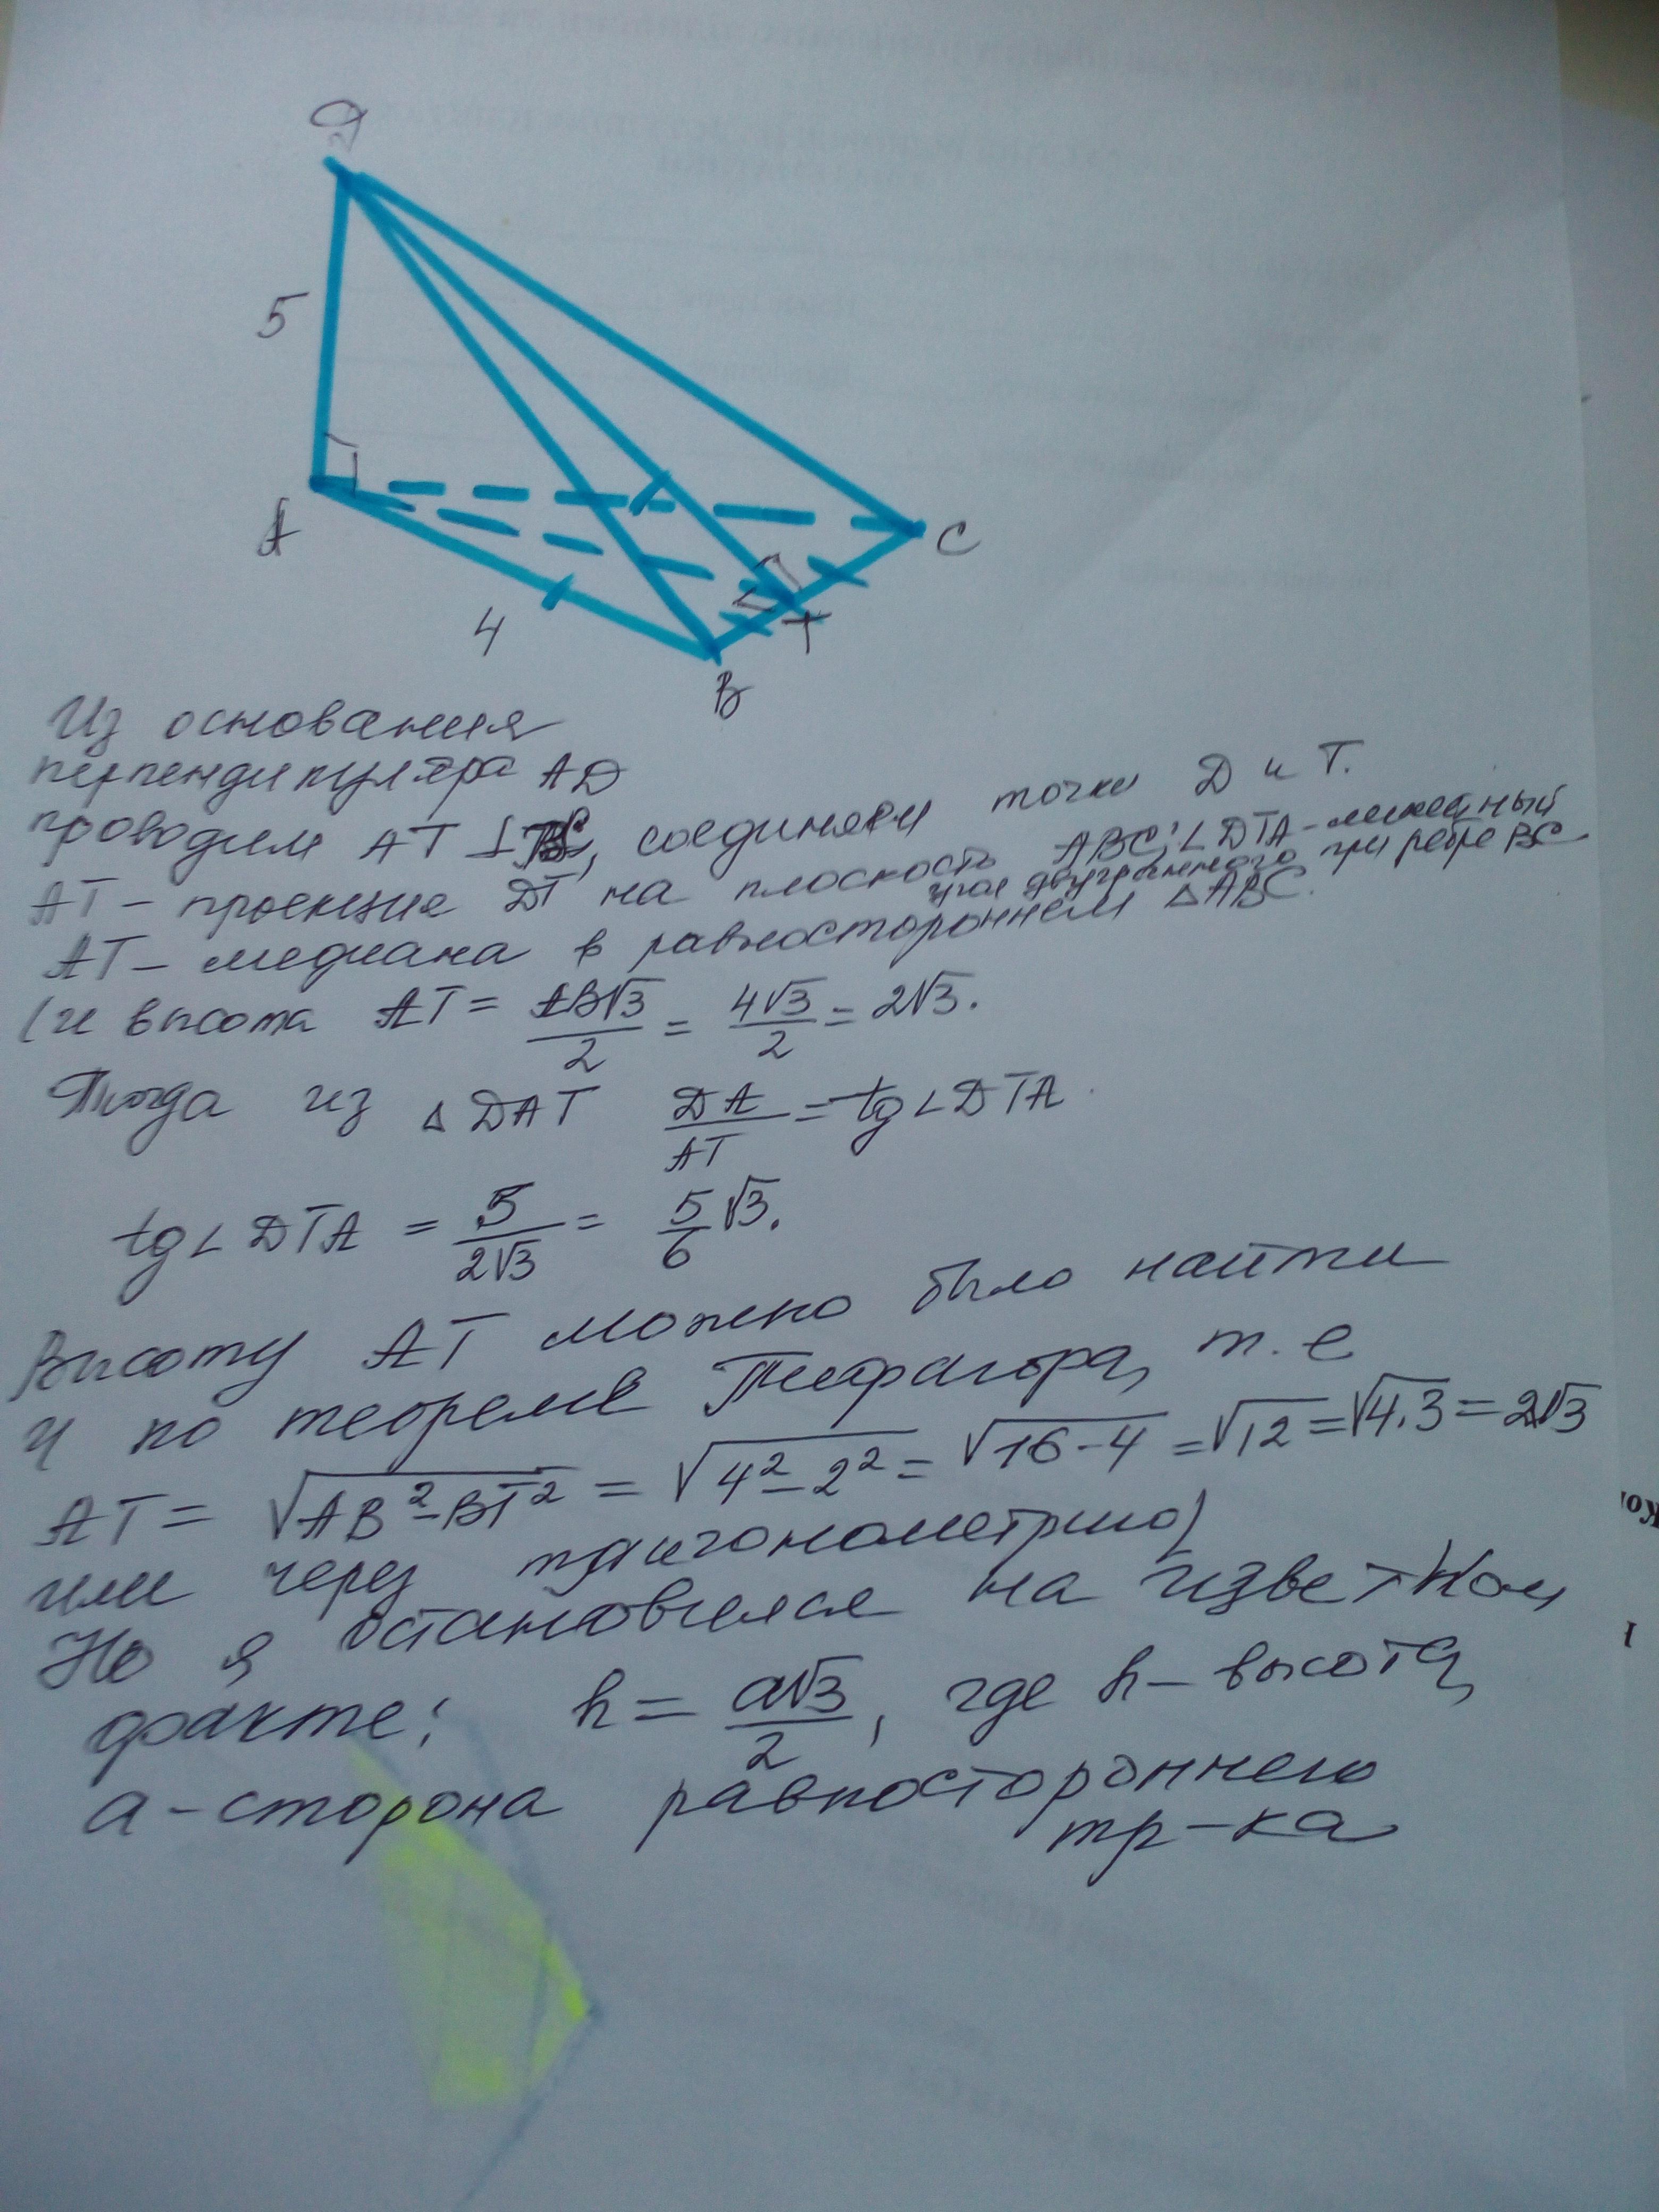 D
5
A
C
4
T
B
Из основания
перпендикуляра AD
проводим AT ⊥ BC, соединяем точки D и T.
AT – проекция DT на плоскость ABC; ∠DTA – линейный
угол двугранного при ребре BC
AT – медиана в равностороннем △ABC.
(и высота AT = AB√3/2 = 4√3/2 = 2√3.
Тогда из △DAT DA/AT = tg∠DTA
tg∠DTA = 5/2√3 = 5/6 √3.
Высоту AT можно было найти
и по теореме Пифагора, т.е
AT = √AB²-BT² = √4²-2² = √16-4 = √12 = √4.3 = 2√3
или через тригонометрию)
Но я остановился на известном
факте: h = a√3/2, где h – высота,
a – сторона равностороннего
тр-ка